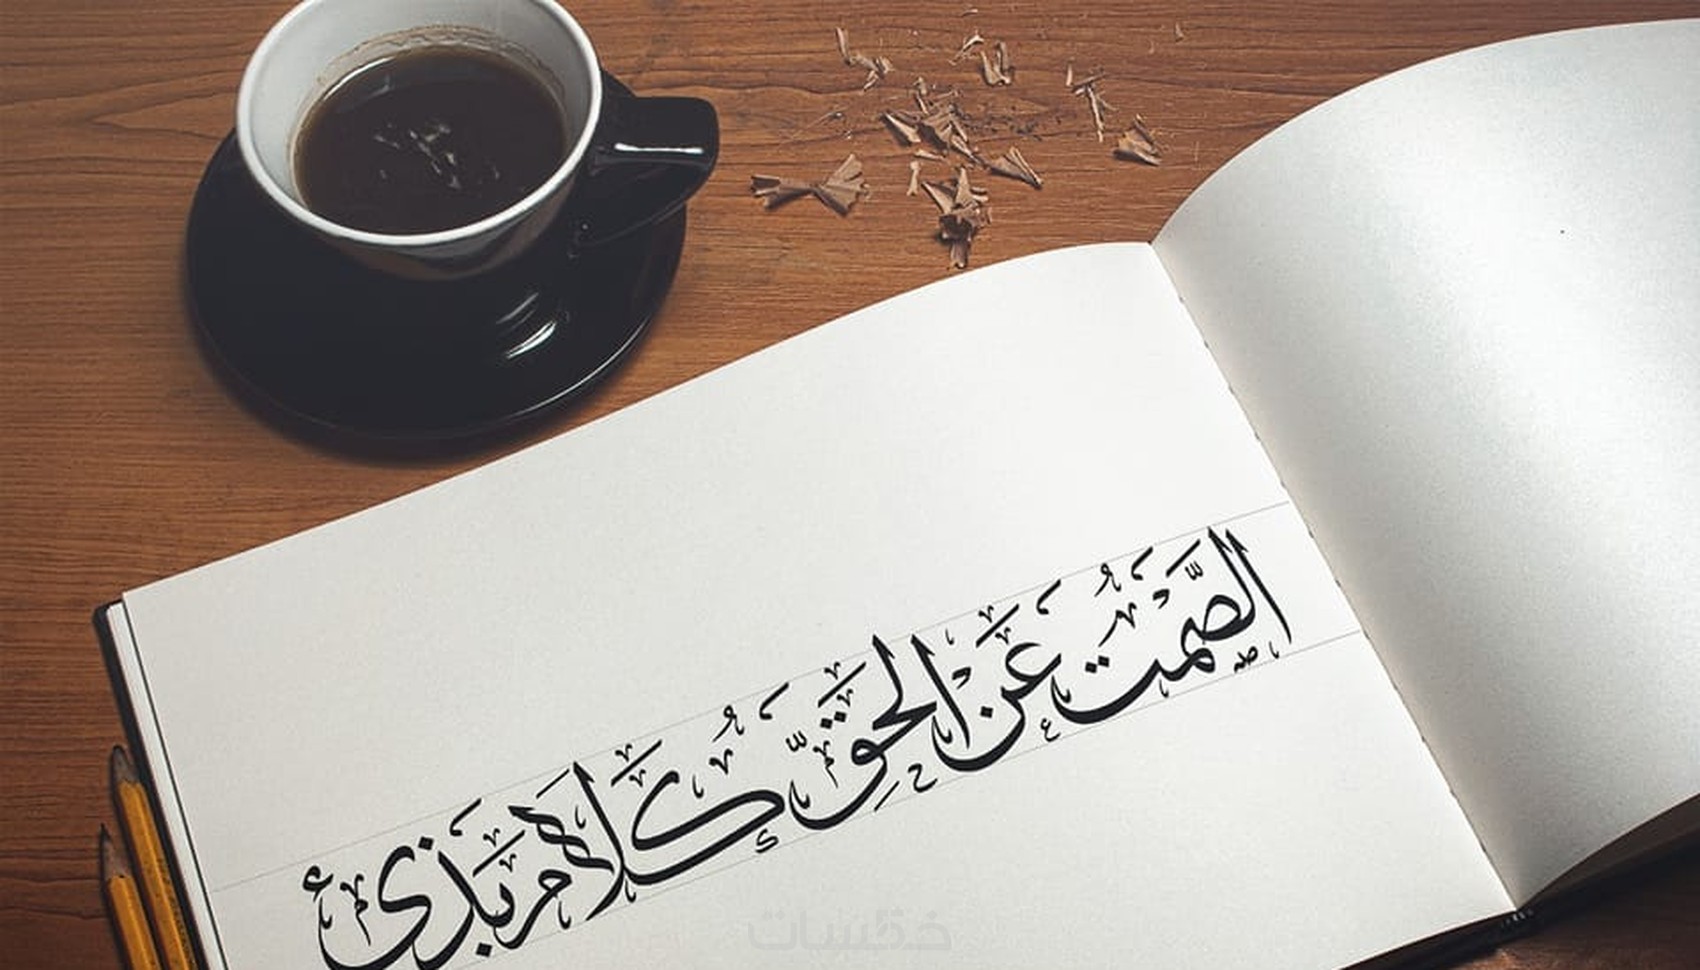 الصَّمْتُ عَنْ الحَقِّ كَلَامٌ بَذئ
خمسات